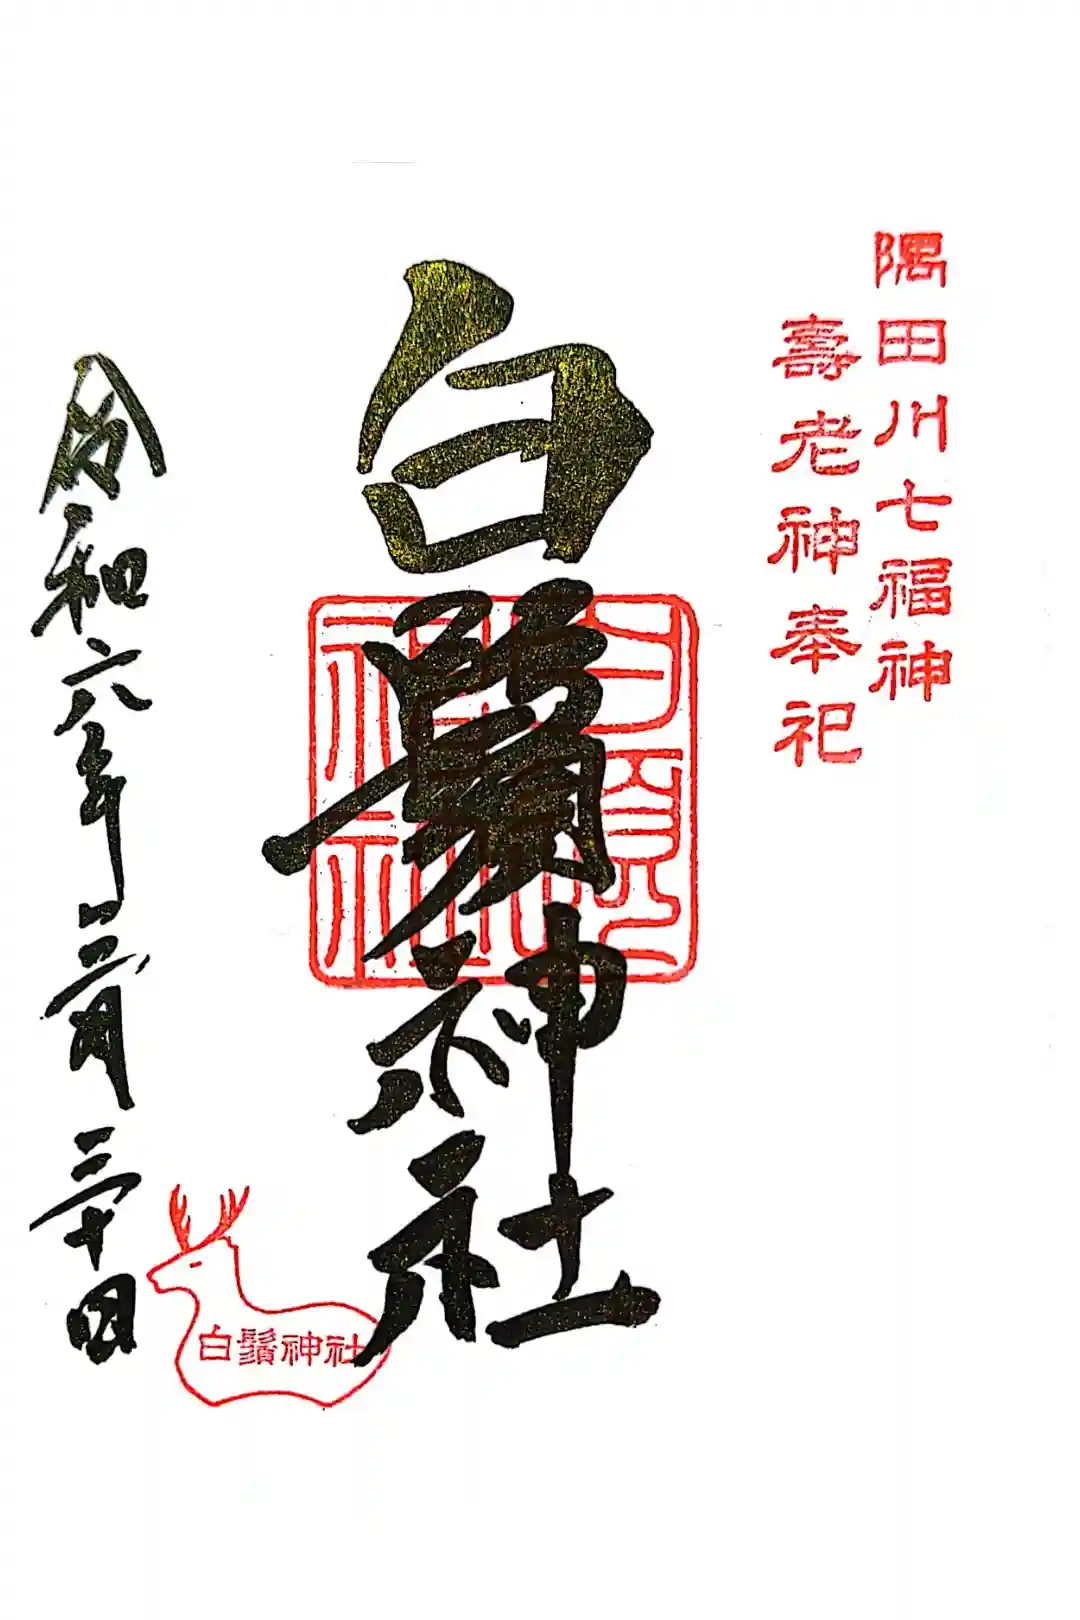 隅田川七福神
壽老神奉祀
白鬚神社
白鬚神社
令和六年二月
三十日
白鬚神社